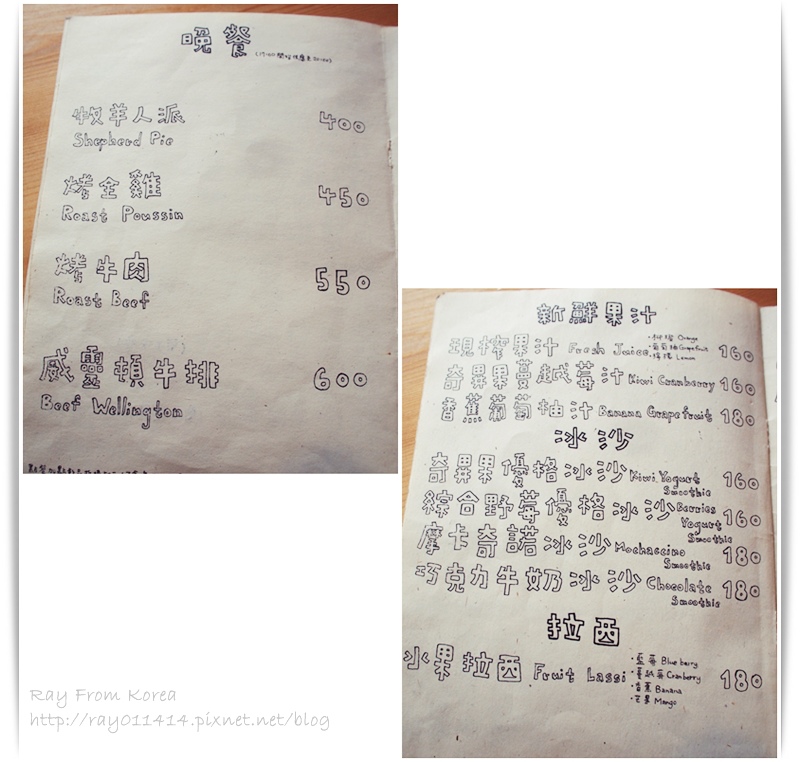 晚餐
牧羊人派 400
Shepherd Pie
烤全雞 450
Roast Poussin
烤牛肉 550
Roast Beef
威靈頓牛排 600
Beef Wellington
新鮮果汁
現榨果汁 Fresh Juice 160
·柳橙 Orange
·葡萄柚 Grapefruit
·檸檬 Lemon
奇異果蔓越莓汁 Kiwi Cranberry 160
香蕉葡萄柚汁 Banana Grapefruit 180
冰沙
奇異果優格冰沙 Kiwi Yogurt Smoothie 160
綜合野莓優格冰沙 Berries Yogurt Smoothie 160
摩卡奇諾冰沙 Mochaccino Smoothie 180
巧克力牛奶冰沙 Chocolate Smoothie 180
拉西
水果拉西 Fruit Lassi 180
·藍莓 Blueberry
·蔓越莓 Cranberry
·香蕉 Banana
·芒果 Mango
Ray From Korea
http://ray011414.pixnet.net/blog